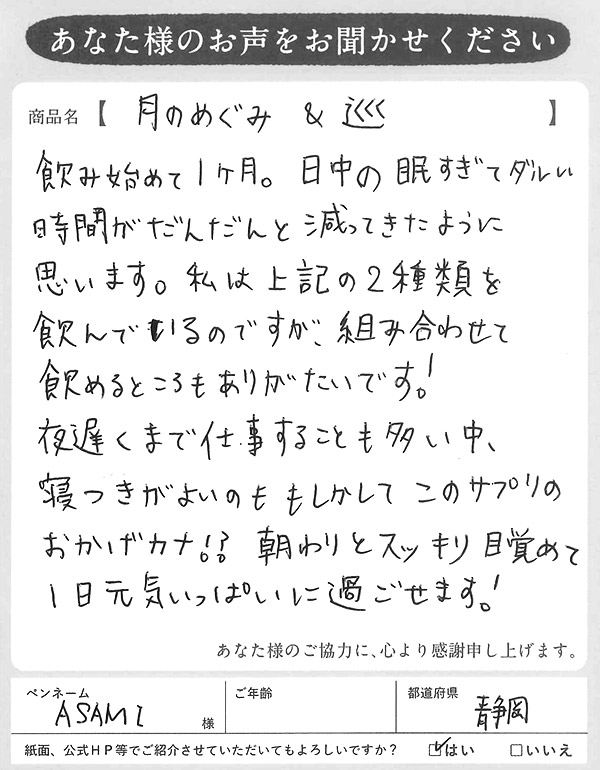 あなた様のお声をお聞かせください
商品名【 月のめぐみ & 巡 】
飲み始めて1ヶ月。日中の眠すぎてダルい
時間がだんだんと減ってきたように
思います。私は上記の2種類を
飲んでいるのですが、組み合わせて
飲めるところもありがたいです!
夜遅くまで仕事することも多い中、
寝つきがよいのももしかしてこのサプリの
おかげカナ!? 朝わりとスッキリ目覚めて
1日元気いっぱいに過ごせます!
あなた様のご協力に、心より感謝申し上げます。
ペンネーム ご年齢 都道府県
ASAMI 様 静岡
紙面、公式HP等でご紹介させていただいてもよろしいですか? ☑はい □いいえ